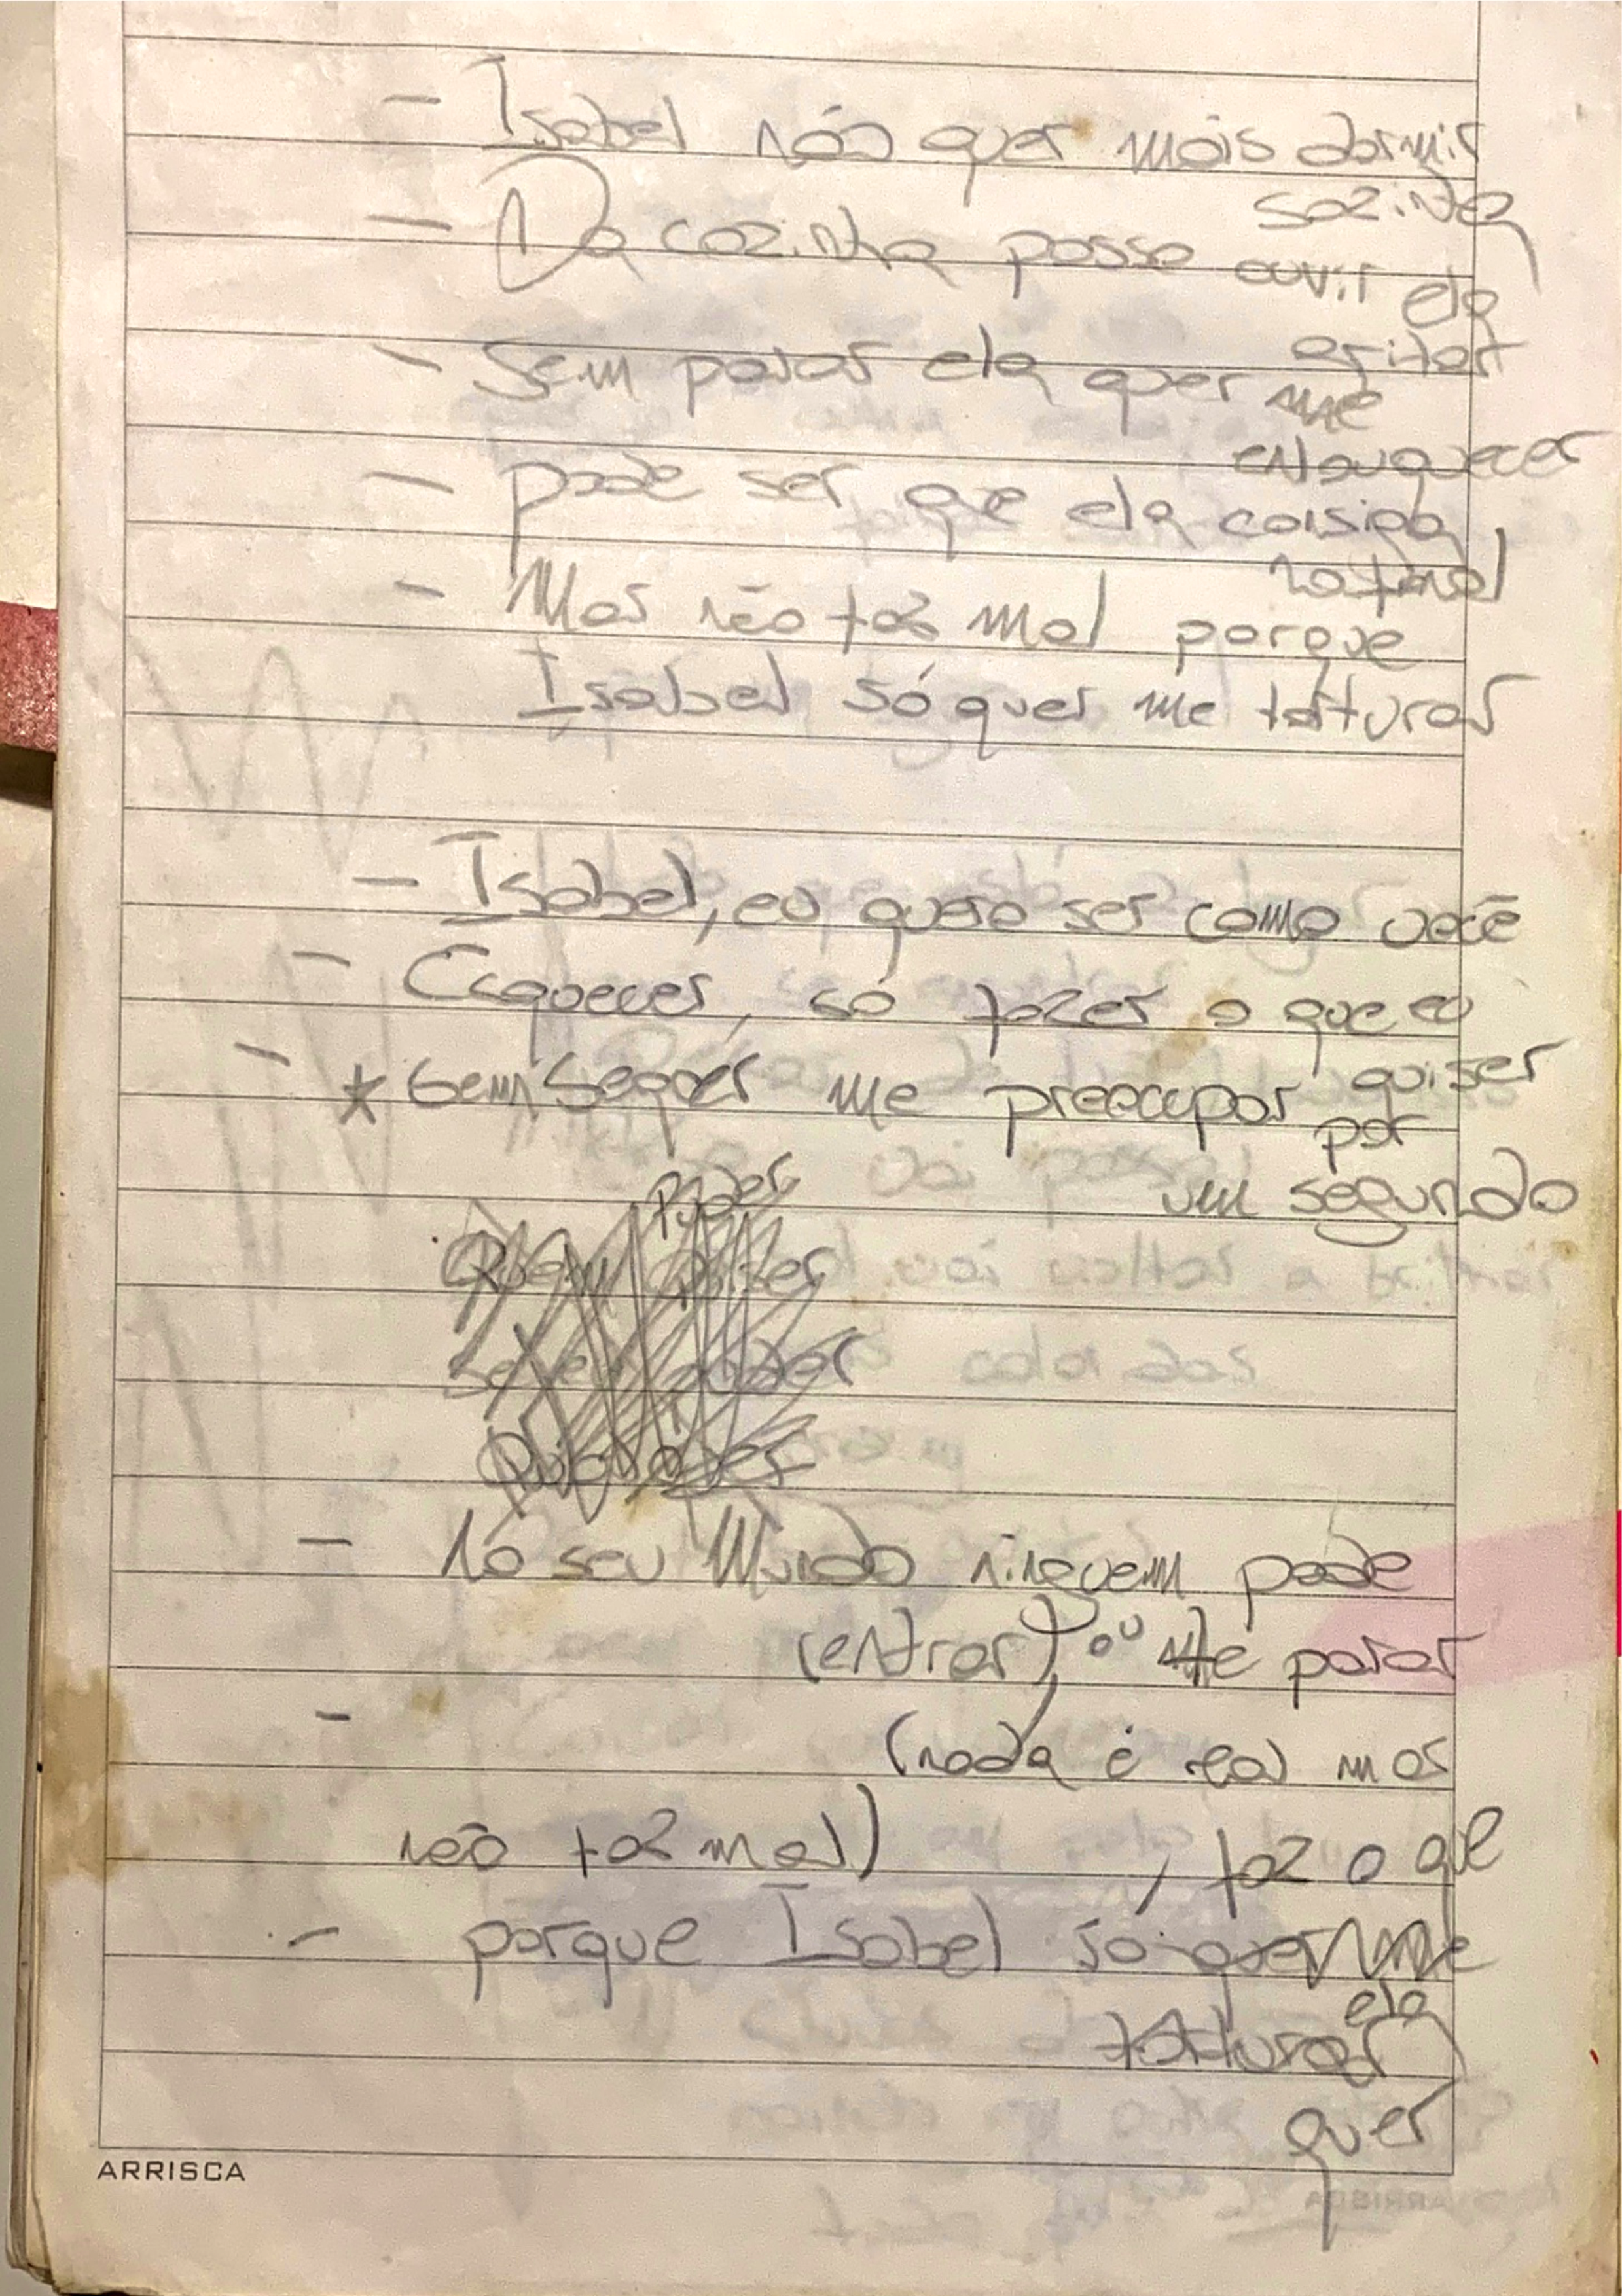 - Isabel não quer mais dormir
sozinha
- Da cozinha posso ouvir ela
gritar
- Sem parar ela quer me
enlouquecer
- pode ser que ela consiga
- Mas não faz mal porque
Isabel só quer me torturar
- Isabel, eu quero ser como você
- Esquecer, só fazer o que eu
quiser
- * Sem sequer me preocupar por
um segundo
Poder
- No seu Mundo ninguem pode
(entrar), ou te parar
- (nada é real mas
não faz mal) , faz o que
- porque Isabel só quer me
ela
torturar
quer
ARRISCA